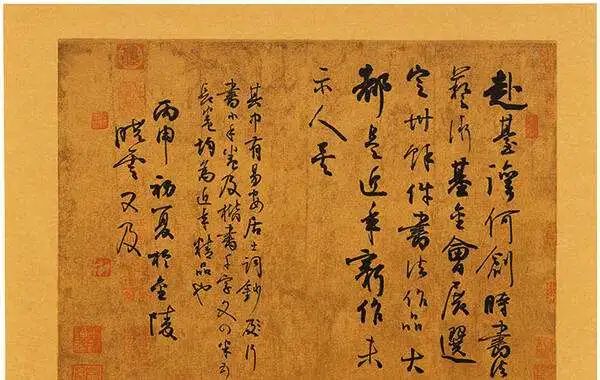 赴臺灣何創時書法
藝術基金會展選
定卅餘件書法作品大
都是近年新作未
示人者
其中有易安居士詞鈔及行
書小手卷及楷書千字文の米了
長卷均為近年精品也
丙申初夏於金陵
曉雲又及